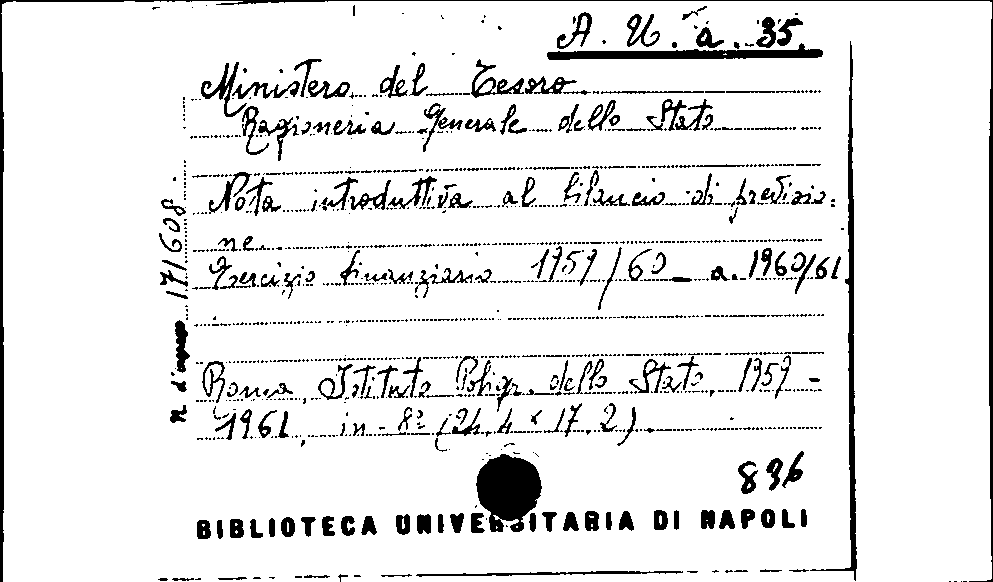 A. U. a. 35.
Ministero del Tesoro.
Ragioneria Generale dello Stato
Nota introduttiva al bilancio di previsio=
ne.
Esercizio finanziario 1959/60 - a. 1960/61.
Roma, Istituto Poligr. dello Stato, 1959 -
1961, in - 8º (24,4 x 17,2).
N. d'ingresso 171608
836
BIBLIOTECA UNIVERSITARIA DI NAPOLI